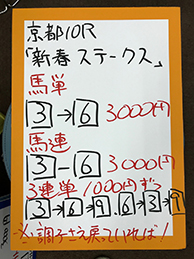 京都10R
「新春ステークス」
馬単
3→6 3000円
馬連
3-6 3000円
3連単 1000円ずつ
3→6→9、6→3→9
※調子さえ戻っていれば!